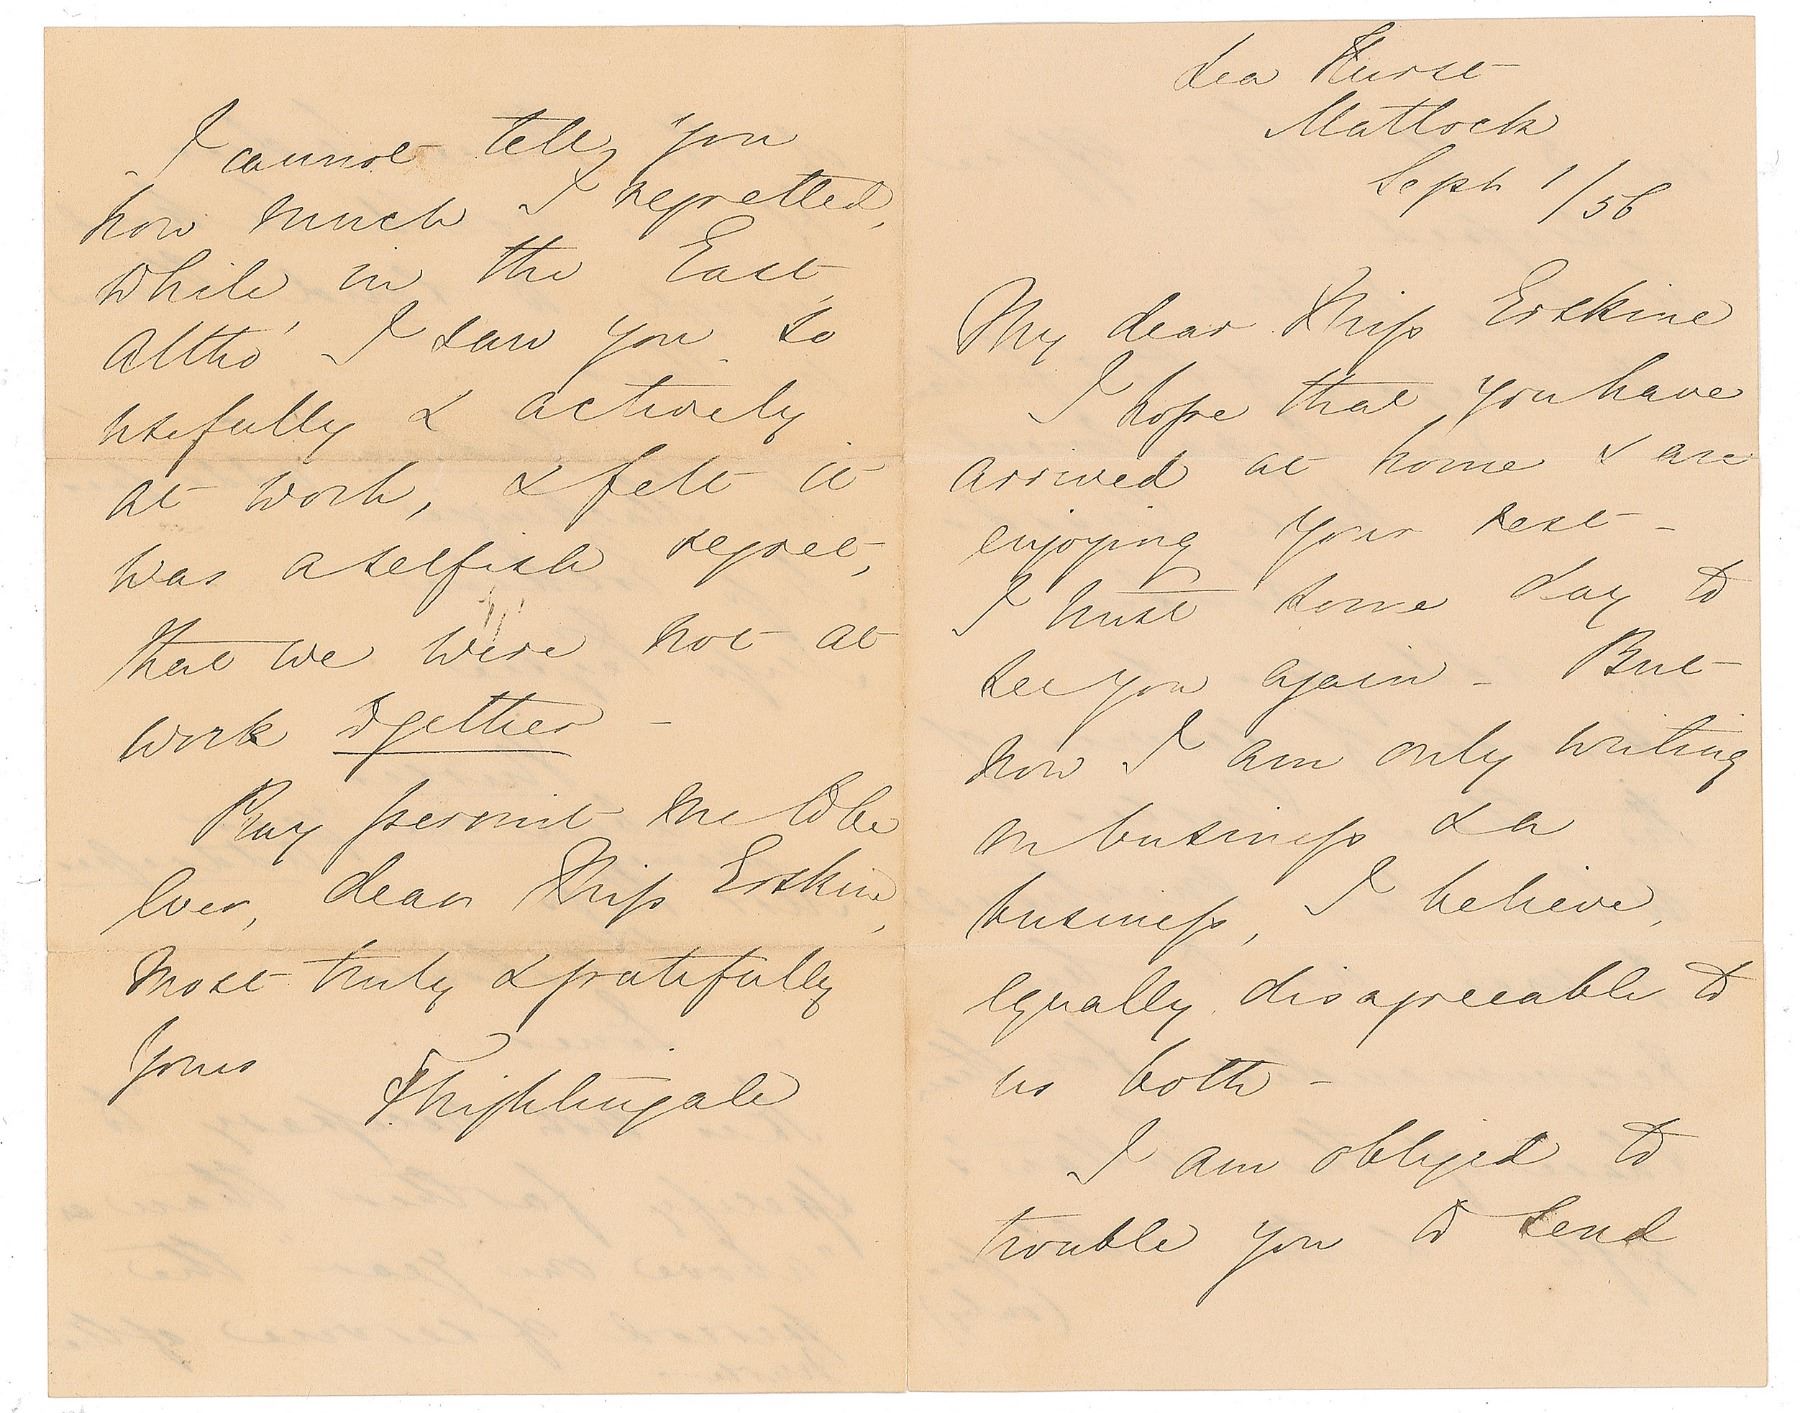 Lea Hurst
Matlock
Sept 1/56
My dear Miss Erskine
I hope that you have
arrived at home & are
enjoying your rest -
I trust some day to
see you again - But
now I am only writing
on business & a
business, I believe,
equally disagreeable to
us both -
I am obliged to
trouble you to send
I cannot tell you
how much I regretted,
while in the East,
altho' I saw you so
usefully & actively
at work, & felt it
was a selfish regret,
that we were not at
work together -
Pray permit me to be
ever, dear Miss Erskine,
most truly & gratefully
yours
F. Nightingale